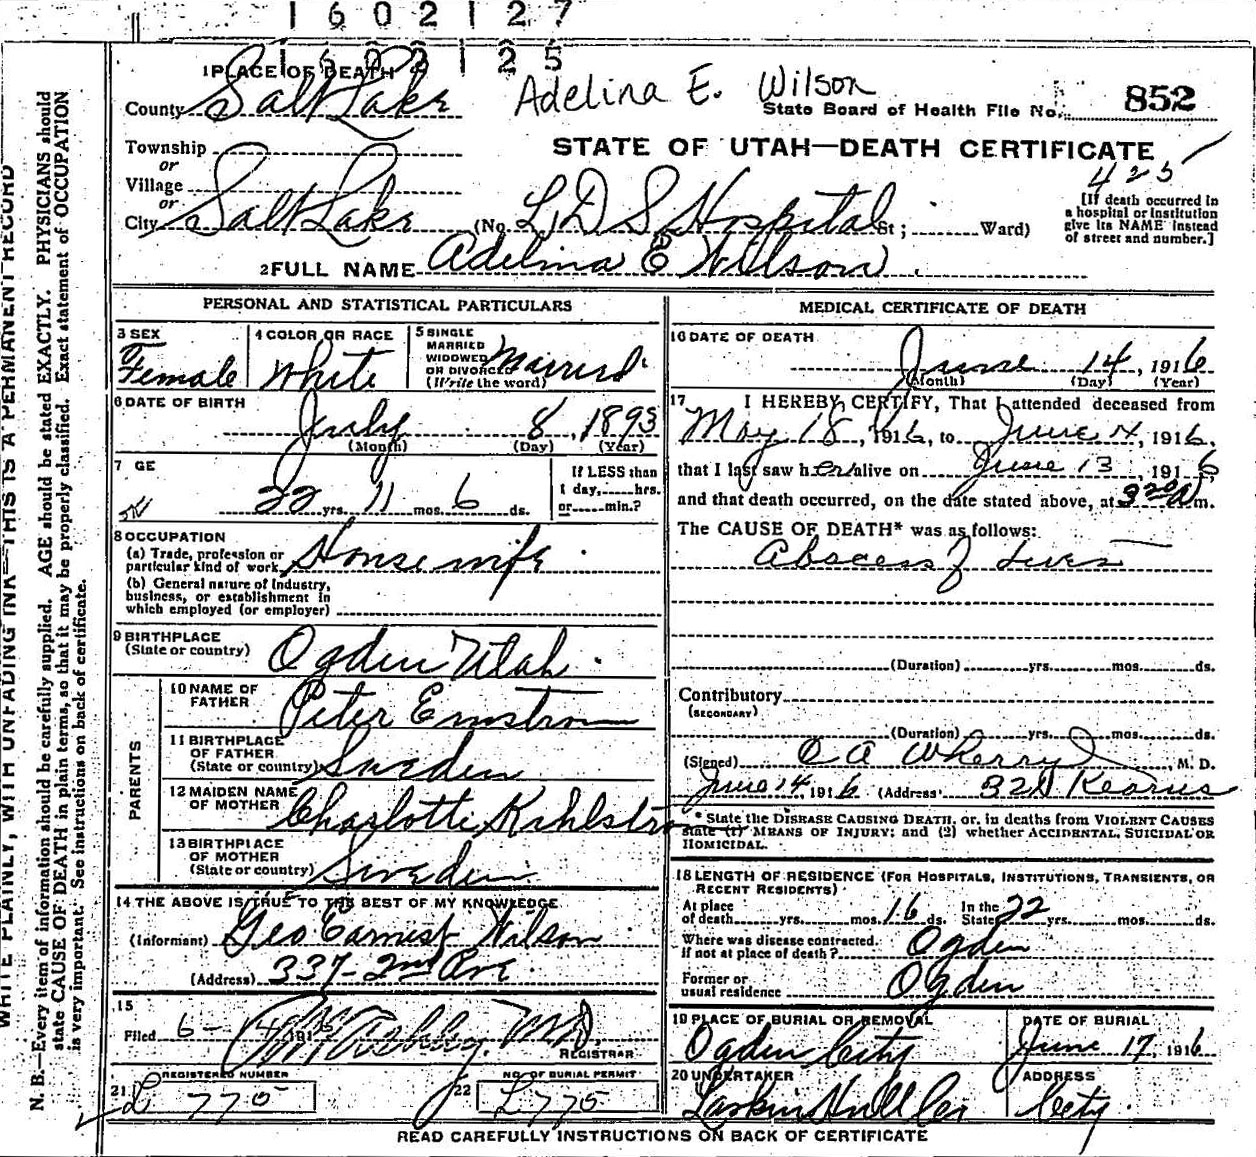 1602127
1602125
1 PLACE OF DEATH
Adelina E. Wilson
County Salt Lake
State Board of Health File No. 852
Township
STATE OF UTAH—DEATH CERTIFICATE
or
Village
425
or
City Salt Lake (No. L D S Hospital St; Ward)
[If death occurred in
a hospital or institution
give its NAME instead
of street and number.]
2 FULL NAME Adelina E Wilson
PERSONAL AND STATISTICAL PARTICULARS
3 SEX
Female
4 COLOR OR RACE
White
5 SINGLE
MARRIED
WIDOWED
OR DIVORCED
(Write the word)
Married
6 DATE OF BIRTH
July 8, 1893
(Month) (Day) (Year)
7 GE
22 yrs. 11 mos. 6 ds.
If LESS than
1 day, hrs.
or min.?
8 OCCUPATION
(a) Trade, profession or
particular kind of work Housewife
(b) General nature of industry,
business, or establishment in
which employed (or employer)
9 BIRTHPLACE
(State or country) Ogden Utah
PARENTS
10 NAME OF
FATHER Peter Ernstrom
11 BIRTHPLACE
OF FATHER
(State or country) Sweden
12 MAIDEN NAME
OF MOTHER Charlotte Kihlstro
13 BIRTHPLACE
OF MOTHER
(State or country) Sweden
14 THE ABOVE IS TRUE TO THE BEST OF MY KNOWLEDGE
(Informant) Geo Earnest Wilson
(Address) 337-2nd Ave
15
Filed 6-14 1916 M.D.
REGISTRAR
REGISTERED NUMBER
21 L 775
NO. OF BURIAL PERMIT
22 L775
MEDICAL CERTIFICATE OF DEATH
16 DATE OF DEATH
June 14, 1916
(Month) (Day) (Year)
17 I HEREBY CERTIFY, That I attended deceased from
May 18, 1916, to June 14, 1916,
that I last saw her alive on June 13, 1916
and that death occurred, on the date stated above, at 3 20 A m.
The CAUSE OF DEATH* was as follows:
Abscess of Liver
(Duration) yrs. mos. ds.
Contributory
(SECONDARY)
(Duration) yrs. mos. ds.
(Signed) O A Wherry, M. D.
June 14, 1916 (Address) Kearns
* State the DISEASE CAUSING DEATH, or, in deaths from VIOLENT CAUSES
state (1) MEANS OF INJURY; and (2) whether ACCIDENTAL, SUICIDAL OR
HOMICIDAL.
18 LENGTH OF RESIDENCE (FOR HOSPITALS, INSTITUTIONS, TRANSIENTS, OR
RECENT RESIDENTS)
At place
of death yrs. mos. 16 ds.
In the
State 22 yrs. mos. ds.
Where was disease contracted.
if not at place of death? Ogden
Former or
usual residence Ogden
19 PLACE OF BURIAL OR REMOVAL
Ogden City
DATE OF BURIAL
June 17, 1916
20 UNDERTAKER
Larkin Hull Co
ADDRESS
City.
READ CAREFULLY INSTRUCTIONS ON BACK OF CERTIFICATE
WRITE PLAINLY, WITH UNFADING INK—THIS IS A PERMANENT RECORD
N. B.—Every item of information should be carefully supplied. AGE should be stated EXACTLY. PHYSICIANS should
state CAUSE OF DEATH in plain terms, so that it may be properly classified. Exact statement of OCCUPATION
is very important. See instructions on back of certificate.